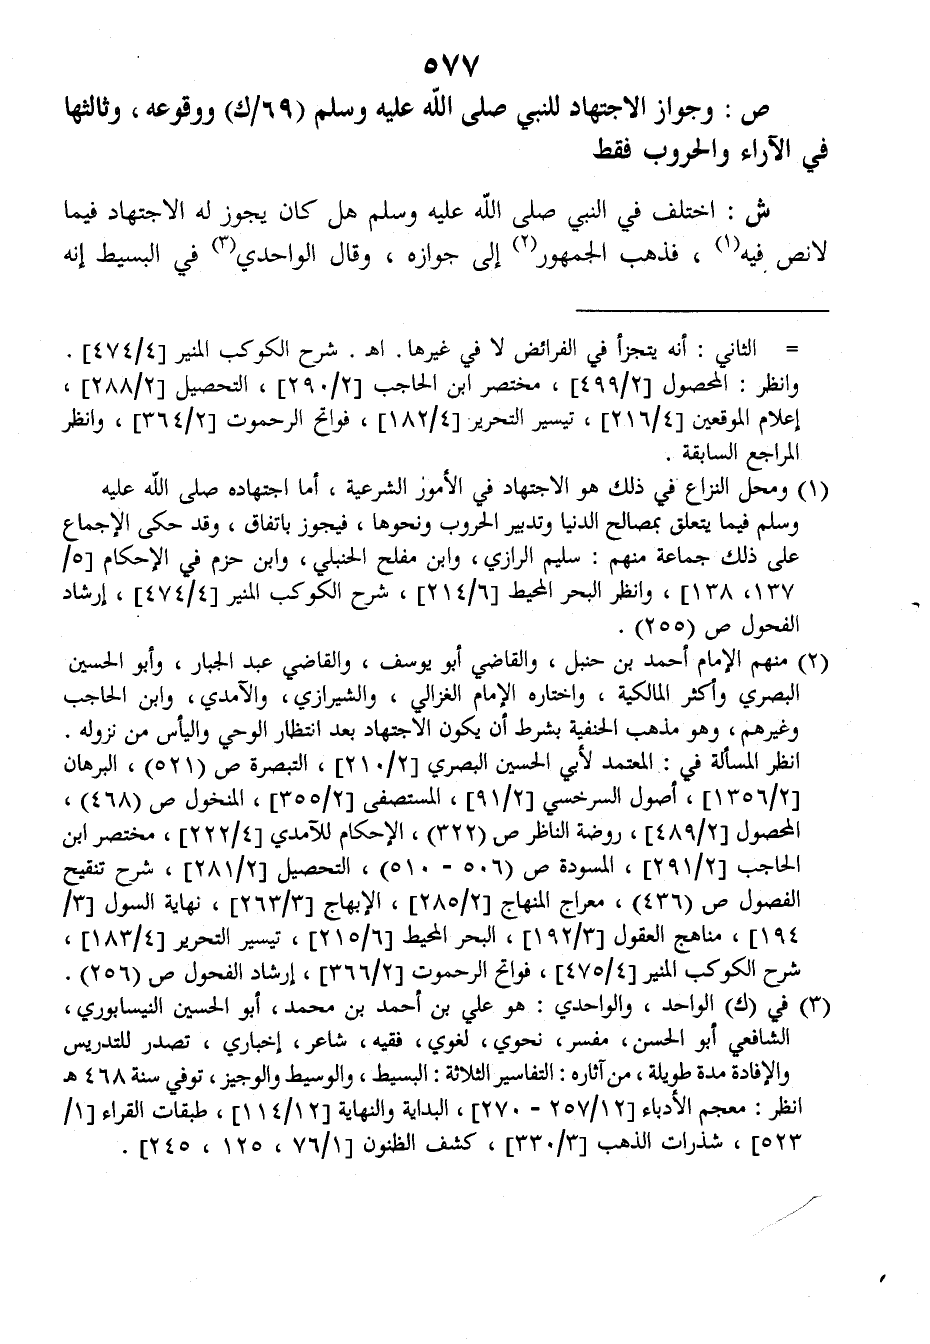 ٥٧٧
ص : وجواز الاجتهاد للنبي صلى الله عليه وسلم (٦٩/ك) ووقوعه ، وثالثها
في الآراء والحروب فقط
ش : اختلف في النبي صلى الله عليه وسلم هل كان يجوز له الاجتهاد فيما
لانص فيه(١) ، فذهب الجمهور(٢) إلى جوازه ، وقال الواحدي(٣) في البسيط إنه
= الثاني : أنه يتجزأ في الفرائض لا في غيرها. اهـ . شرح الكوكب المنير [٤٧٤/٤] .
وانظر : المحصول [٤٩٩/٢] ، مختصر ابن الحاجب [٢٩٠/٢] ، التحصيل [٢٨٨/٢] ،
إعلام الموقعين [٢١٦/٤] ، تيسير التحرير [١٨٢/٤] ، فواتح الرحموت [٣٦٤/٢] ، وانظر
المراجع السابقة .
(١) ومحل النزاع في ذلك هو الاجتهاد في الأمور الشرعية ، أما اجتهاده صلى الله عليه
وسلم فيما يتعلق بمصالح الدنيا وتدبير الحروب ونحوها ، فيجوز باتفاق ، وقد حكى الإجماع
على ذلك جماعة منهم : سليم الرازي ، وابن مفلح الحنبلي ، وابن حزم في الإحكام [٥/
١٣٧، ١٣٨] ، وانظر البحر المحيط [٢١٤/٦] ، شرح الكوكب المنير [٤٧٤/٤] ، إرشاد
الفحول ص (٢٥٥) .
(٢) منهم الإمام أحمد بن حنبل ، والقاضي أبو يوسف ، والقاضي عبد الجبار ، وأبو الحسين
البصري وأكثر المالكية ، واختاره الإمام الغزالي ، والشيرازي ، والآمدي ، وابن الحاجب
وغيرهم ، وهو مذهب الحنفية بشرط أن يكون الاجتهاد بعد انتظار الوحي واليأس من نزوله .
انظر المسألة في : المعتمد لأبي الحسين البصري [٢١٠/٢] ، التبصرة ص (٥٢١) ، البرهان
[١٣٥٦/٢] ، أصول السرخسي [٩١/٢] ، المستصفى [٣٥٥/٢] ، المنخول ص (٤٦٨) ،
المحصول [٤٨٩/٢] ، روضة الناظر ص (٣٢٢) ، الإحكام للآمدي [٢٢٢/٤] ، مختصر ابن
الحاجب [٢٩١/٢] ، المسودة ص (٥٠٦ - ٥١٠) ، التحصيل [٢٨١/٢] ، شرح تنقيح
الفصول ص (٤٣٦) ، معراج المنهاج [٢٨٥/٢] ، الإبهاج [٢٦٣/٣] ، نهاية السول [٣/
١٩٤] ، مناهج العقول [١٩٢/٣] ، البحر المحيط [٢١٥/٦] ، تيسير التحرير [١٨٣/٤] ،
شرح الكوكب المنير [٤٧٥/٤] ، فواتح الرحموت [٣٦٦/٢] ، إرشاد الفحول ص (٢٥٦) .
(٣) في (ك) الواحد ، والواحدي : هو علي بن أحمد بن محمد ، أبو الحسين النيسابوري ،
الشافعي أبو الحسن ، مفسر ، نحوي ، لغوي ، فقيه ، شاعر ، إخباري ، تصدر للتدريس
والإفادة مدة طويلة ، من آثاره : التفاسير الثلاثة : البسيط ، والوسيط والوجيز ، توفي سنة ٤٦٨ هـ
انظر : معجم الأدباء [٢٥٧/١٢ - ٢٧٠] ، البداية والنهاية [١١٤/١٢] ، طبقات القراء [١/
٥٢٣] ، شذرات الذهب [٣٣٠/٣] ، كشف الظنون [٧٦/١ ، ١٢٥ ، ٢٤٥] .